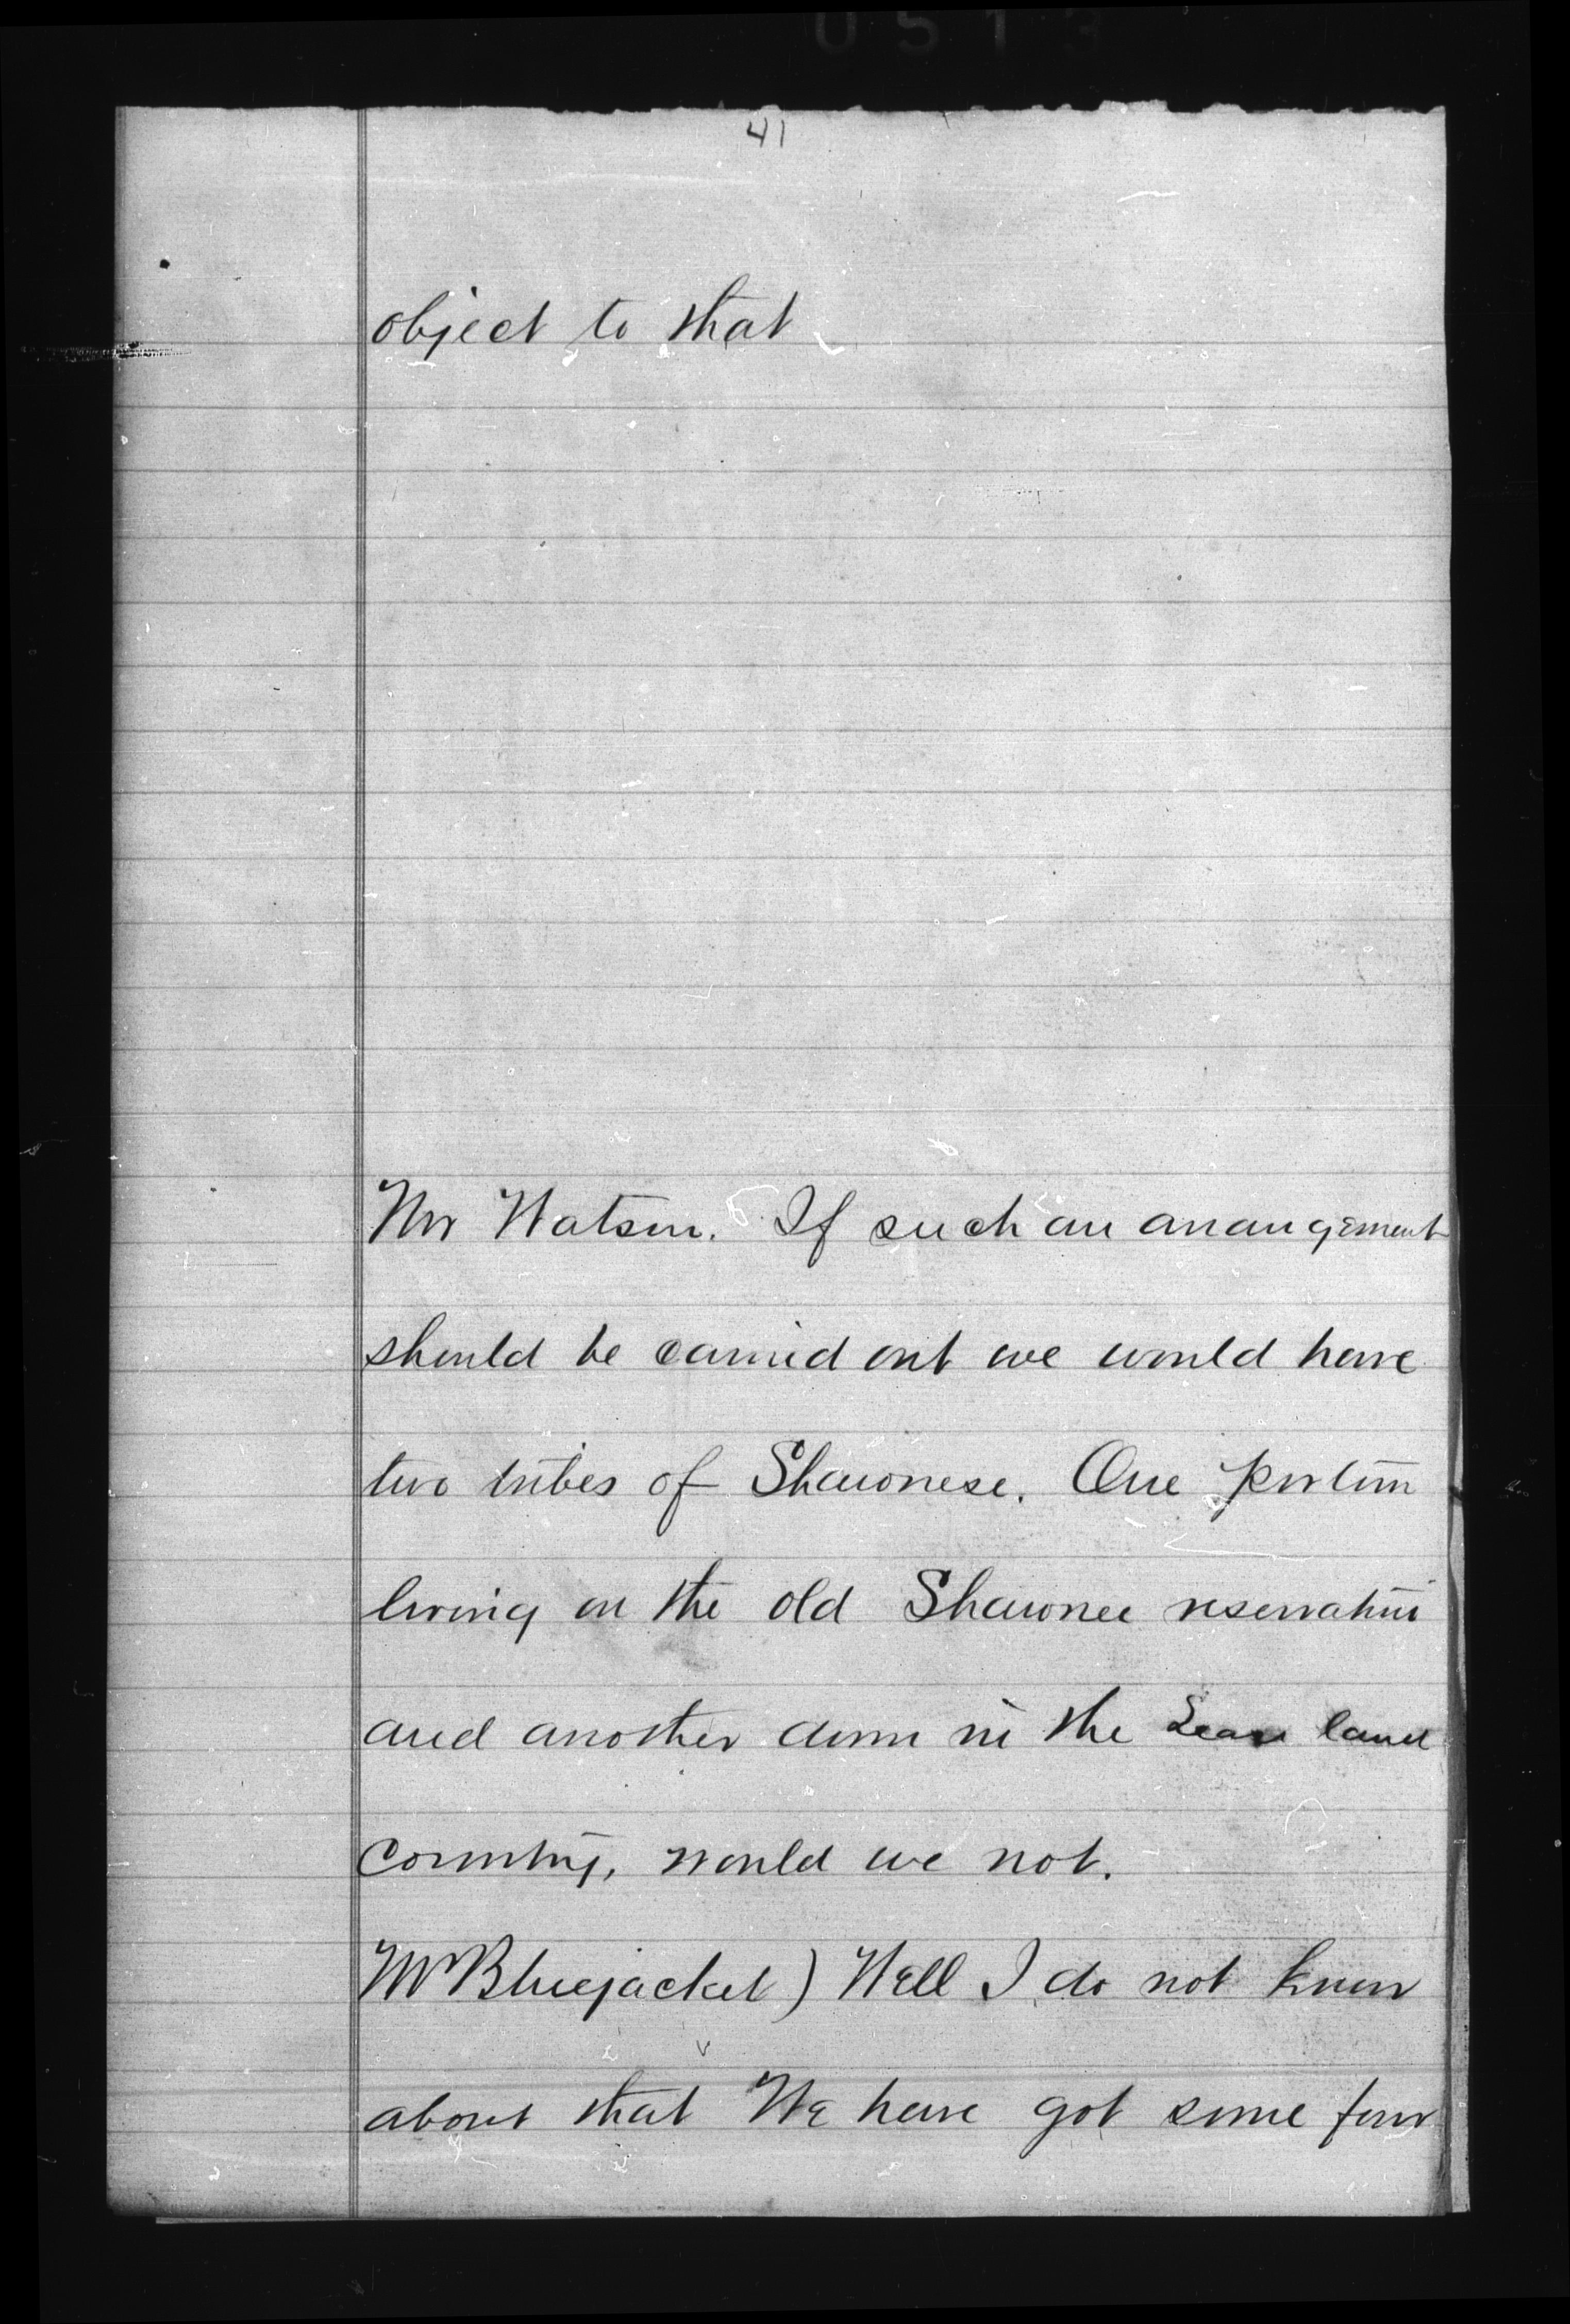 0513
41
object to that
Mr Watson. If such an arrangement
should be carried out we would have
two tribes of Shawnese. One portion
living on the old Shawnee reservation
and another down in the land
country, would we not.
Mr Bluejacket) Well I do not know
about that We have got some four